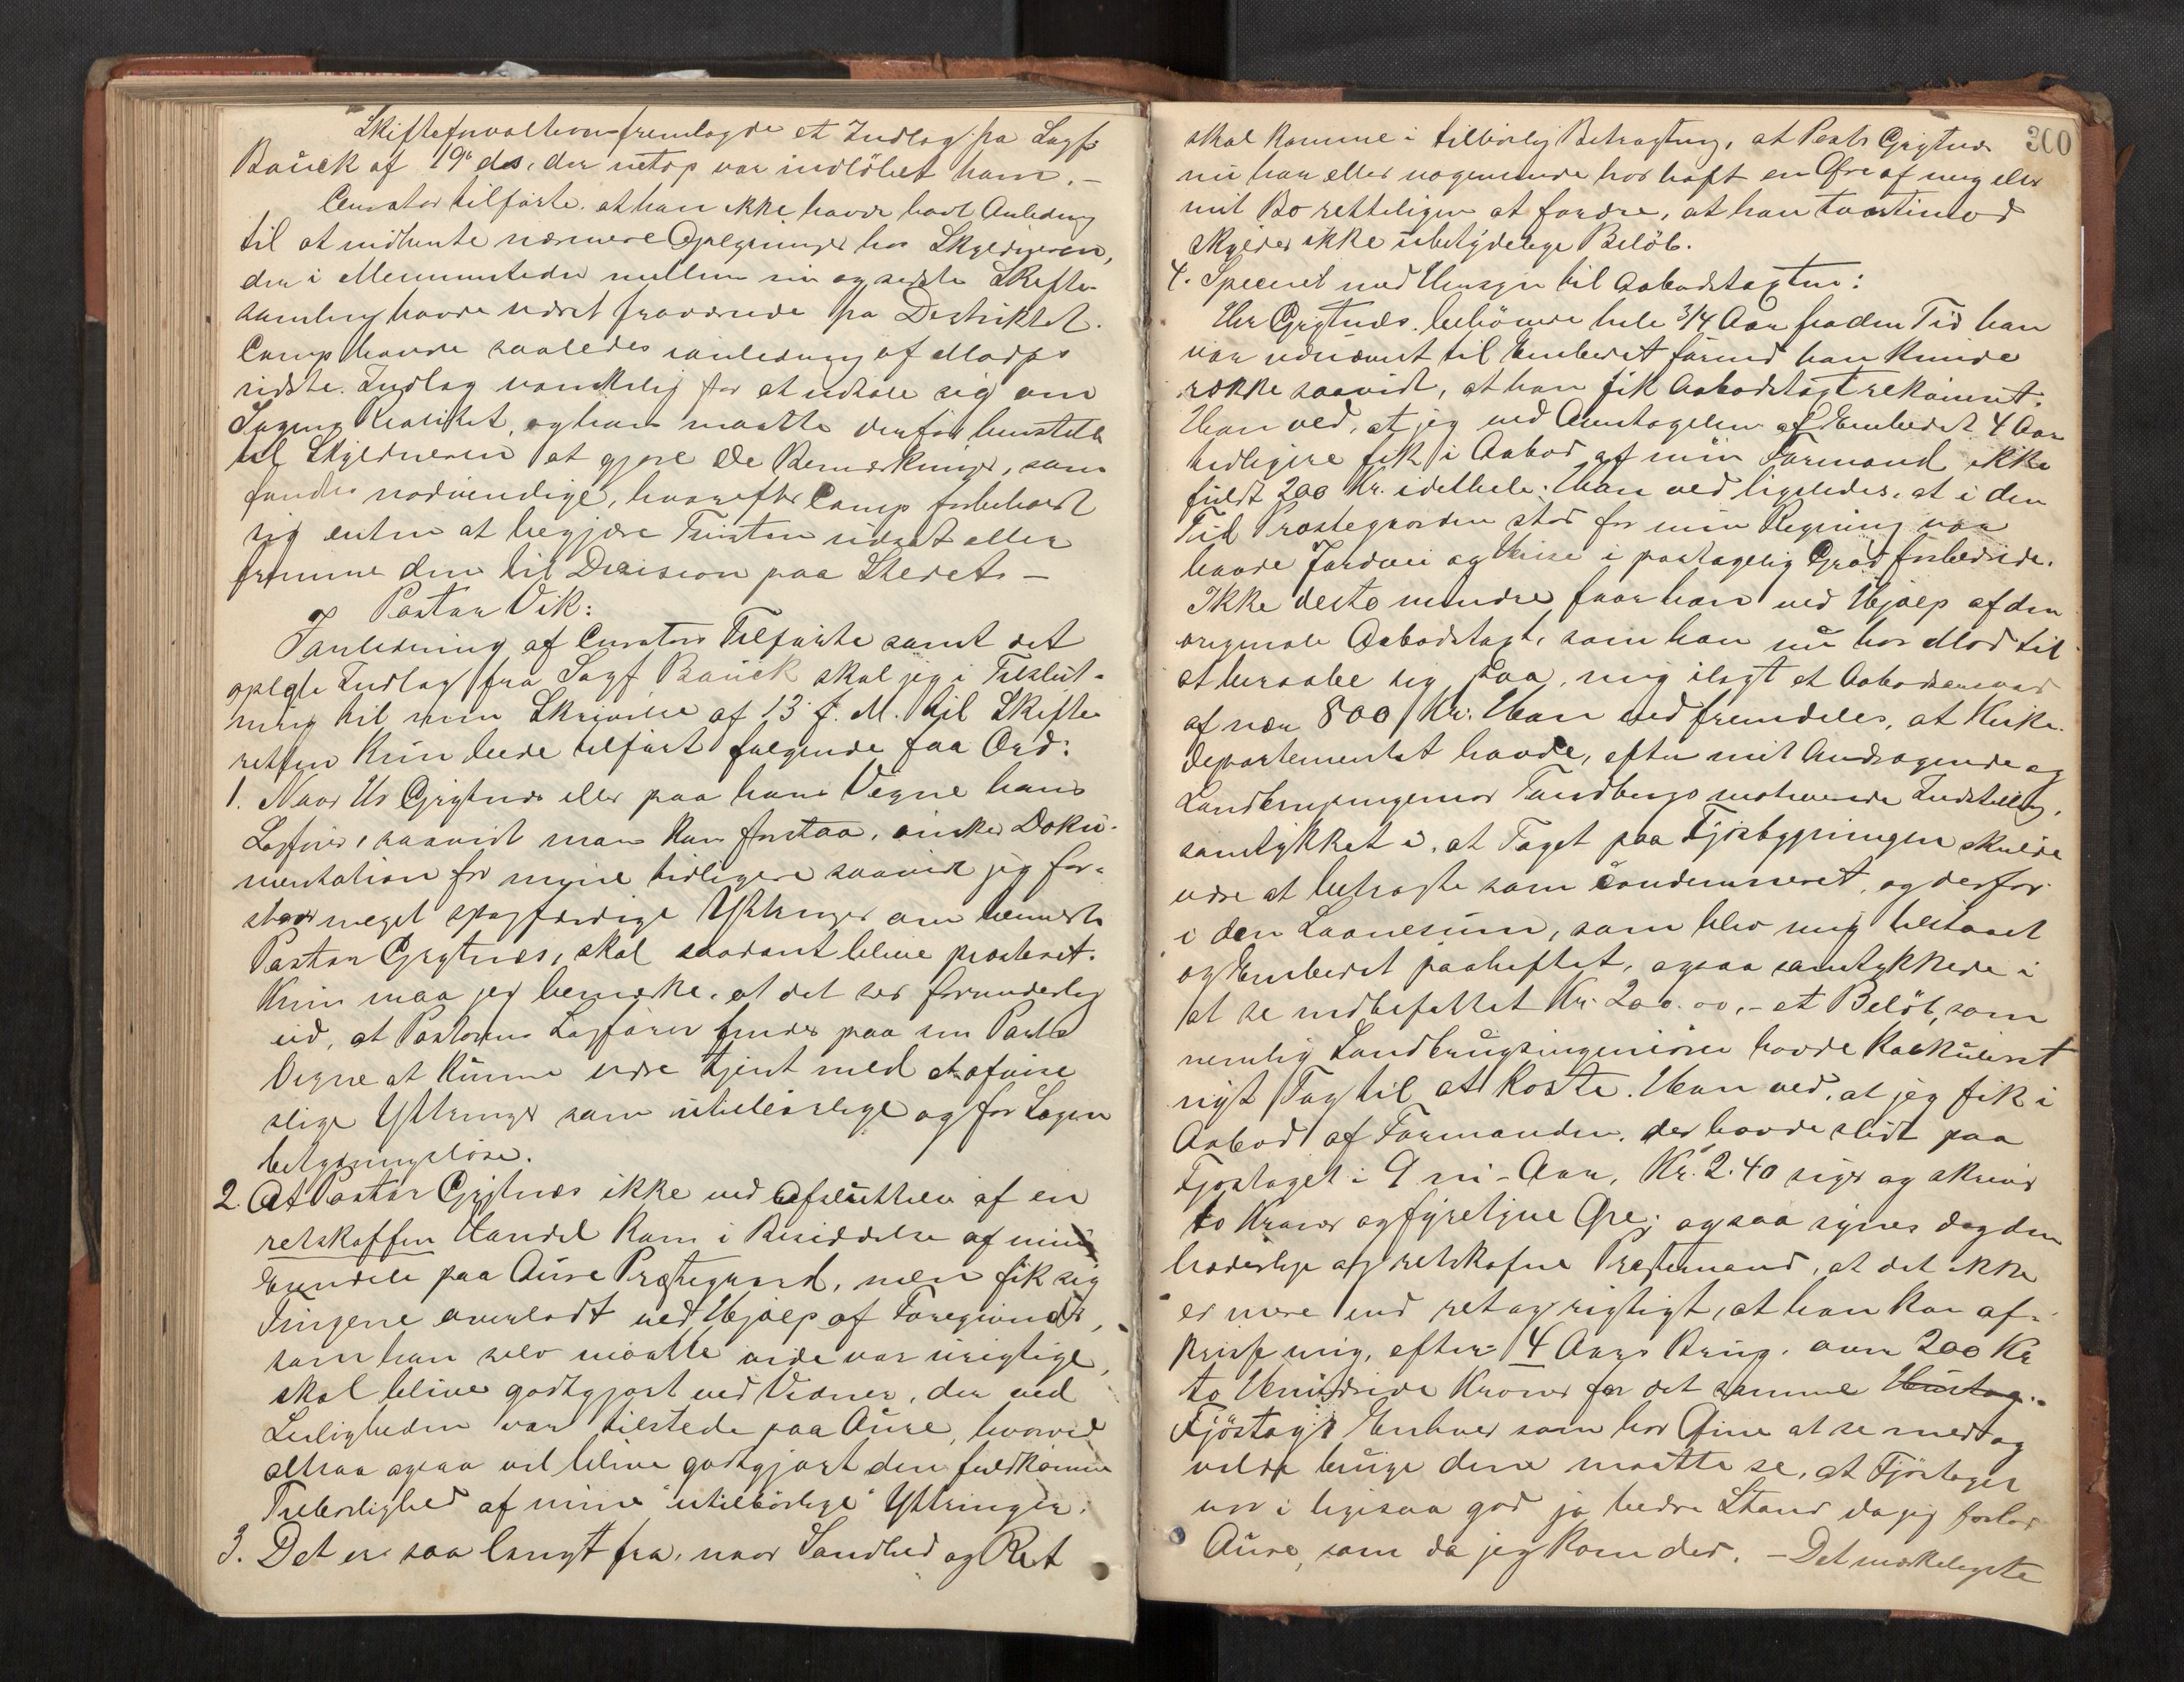 Skifteforvalteren fremlagde et Indlæg fra Sagf.
Bauck af 19de ds, der netop var indløbet ham. –
Curator tilførte, at han ikke havde havt Anledning
til at indhente nærmere Oplysninger hos Skyldneren,
der i Mellemtiden mellem nu og sidste Skifte-
samling havde været fraværende fra Distriktet.
Camp havde saaledes ianledning af Modps
sidste Indlæg vanskelig for at udtale sig om
Sagens Realitet, og han maatte derfor henstille
til Skyldneren at gjøre de Bemærkninger, som
fandtes nødvendige, hvorefter Camp forbeholdt
sig enten at begjære Fristen udsat eller
fremme den til Decision paa Stedet. –
Pastor Vik:
Ianledning af Curators Tilførte samt det
oplæste Indlæg fra Sagf Bauck skal jeg i Tilslut-
ning til min Skrivelse af 13 f. M. til Skifte-
retten kun bede tilført følgende faa Ord:
1. Naar Hr Grytnæs eller paa hans Vegne hans
Lagfører, saavidt man kan forstaa, ønsker Doku-
mentation for mine tidligere saavidt jeg for-
staar meget spagfærdige Yttringer om hernævnte
Pastor Grytnæs, skal saadant blive præsteret.
Kun maa jeg bemærke, at det ser forunderlig
ud, at Pastorens Lagfører finder paa sin Parts
Vegne at kunne være tjent med at afvise
slige Yttringer som utilbørlige og for Sagen
betydningsløse.
2. At Pastor Grytnæs ikke ved Afslutten af en
retskaffen Handel kom i Besiddelse af mine
Eiendele paa Aure Præstegaard, men fik sig
Tingene overladt ved Hjælp af Foregivender,
som han selv maatte vide var urigtige,
skal blive godtgjort ved Vidner, der ved
Leiligheden var tilstede paa Aure, hvorved
altsaa ogsaa vil blive godtgjort den fuldkomne
Tilbørlighed af mine "utilbørlige" Yttringer.
3. Det er saa langt fra, naar Sandhed og Ret
300
skal komme i tilbørlig Betragtning, at Pastor Grytnæs
nu har eller nogensinde har haft en Øre af mig eller
mit Bo retteligen at fordre, at han tvertimod
skylder ikke ubetydelige Beløb.
4. Specielt med Hensyn til Aabodstaxten:
Hr Grytnæs behøvede hele 3/4 Aar fra den Tid han
var udnævnt til Embedet førend han kunde
række saavidt, at han fik Aabodstaxt rekvireret.
Han ved, at jeg ved Overtagelsen af Embedet 4 Aar
tidligere fik i Aabod af min Formand ikke
fuldt 200 Kr. idethele. Han ved ligeledes, at i den
Tid Præstegaarden stod for min Regning var
baade Jordvei og Huse i paatagelig Grad forbedrede.
Ikke desto mindre faar han ved Hjælp af den
originale Aabodstaxt, som han nu har Mod til
at beraabe sig paa, mig ilagt et Aabodsansvar
af nær 800 Kr. Han ved fremdeles, at Kirke-
departementet havde, efter mit Andragende og
Landbrugsingeniør Tandbergs motiverede Indstilling,
samtykket i, at Taget paa Fjøsbygningen skulde
være at betragte som condemneret, og derfor
i den Laanesum, som blev mig tilstaaet
og Embedet paaheftet, ogsaa samtykkede i
at se indbefattet Kr. 200.00, – et Beløb, som
nemlig Landbrugsingeniøren havde kalkuleret
nyt Tag til at koste. Han ved, at jeg fik i
Aabod af Formanden, der havde slidt paa
Fjøstaget i 9 ni – Aar, Kr. 2.40 siger og skriver
to Kroner og fyretyve Øre; ogsaa synes dog den
hæderlige og retskafne Præstemand, at det ikke
er mere end ret og rigtigt, at han kan af-
knibe mig, efter 4 Aars Brug, over 200 Kr
to Hundrede Kroner for det samme Hustag.
Fjøstag! Enhver som har Øine at se med og
vilde bruge dem maatte se, at Fjøstaget
var i ligesaa god ja bedre Stand da jeg forlod
Aure, som da jeg kom der. – Det mærkeligste